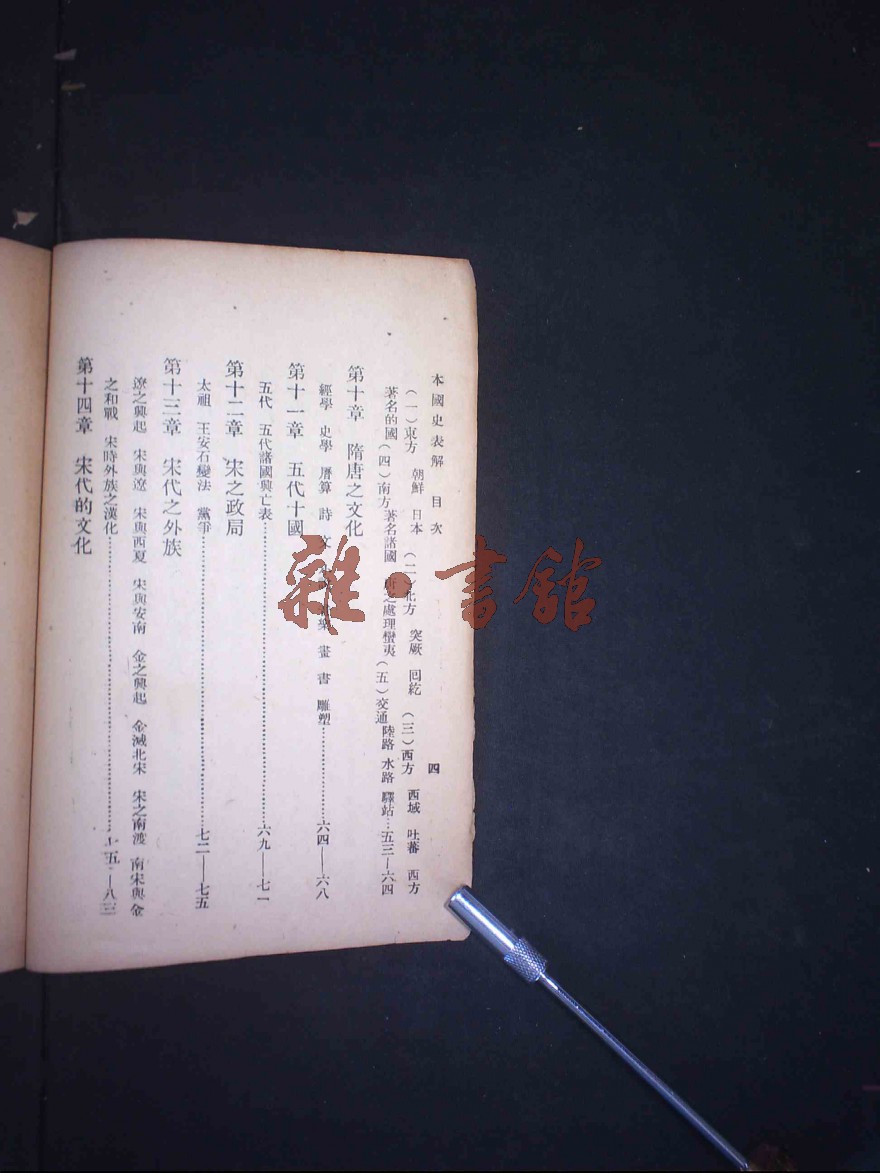 本國史表解 目次 四
(一)東方 朝鮮 日本 (二)北方 突厥 回紇 (三)西方 西域 吐蕃 西方
著名的國(四)南方著名諸國 之處理蠻夷(五)交通陸路 水路 驛站…五三—六四
第十章 隋唐之文化
經學 史學 曆算 詩 文 畫 書 雕塑………六四—六八
第十一章 五代十國
五代 五代諸國興亡表………六九—七一
第十二章 宋之政局
太祖 王安石變法 黨爭………七二—七五
第十三章 宋代之外族
遼之興起 宋與遼 宋與西夏 宋與安南 金之興起 金滅北宋 宋之南渡 南宋與金
之和戰 宋時外族之漢化………七五—八三
第十四章 宋代的文化
雜·書館